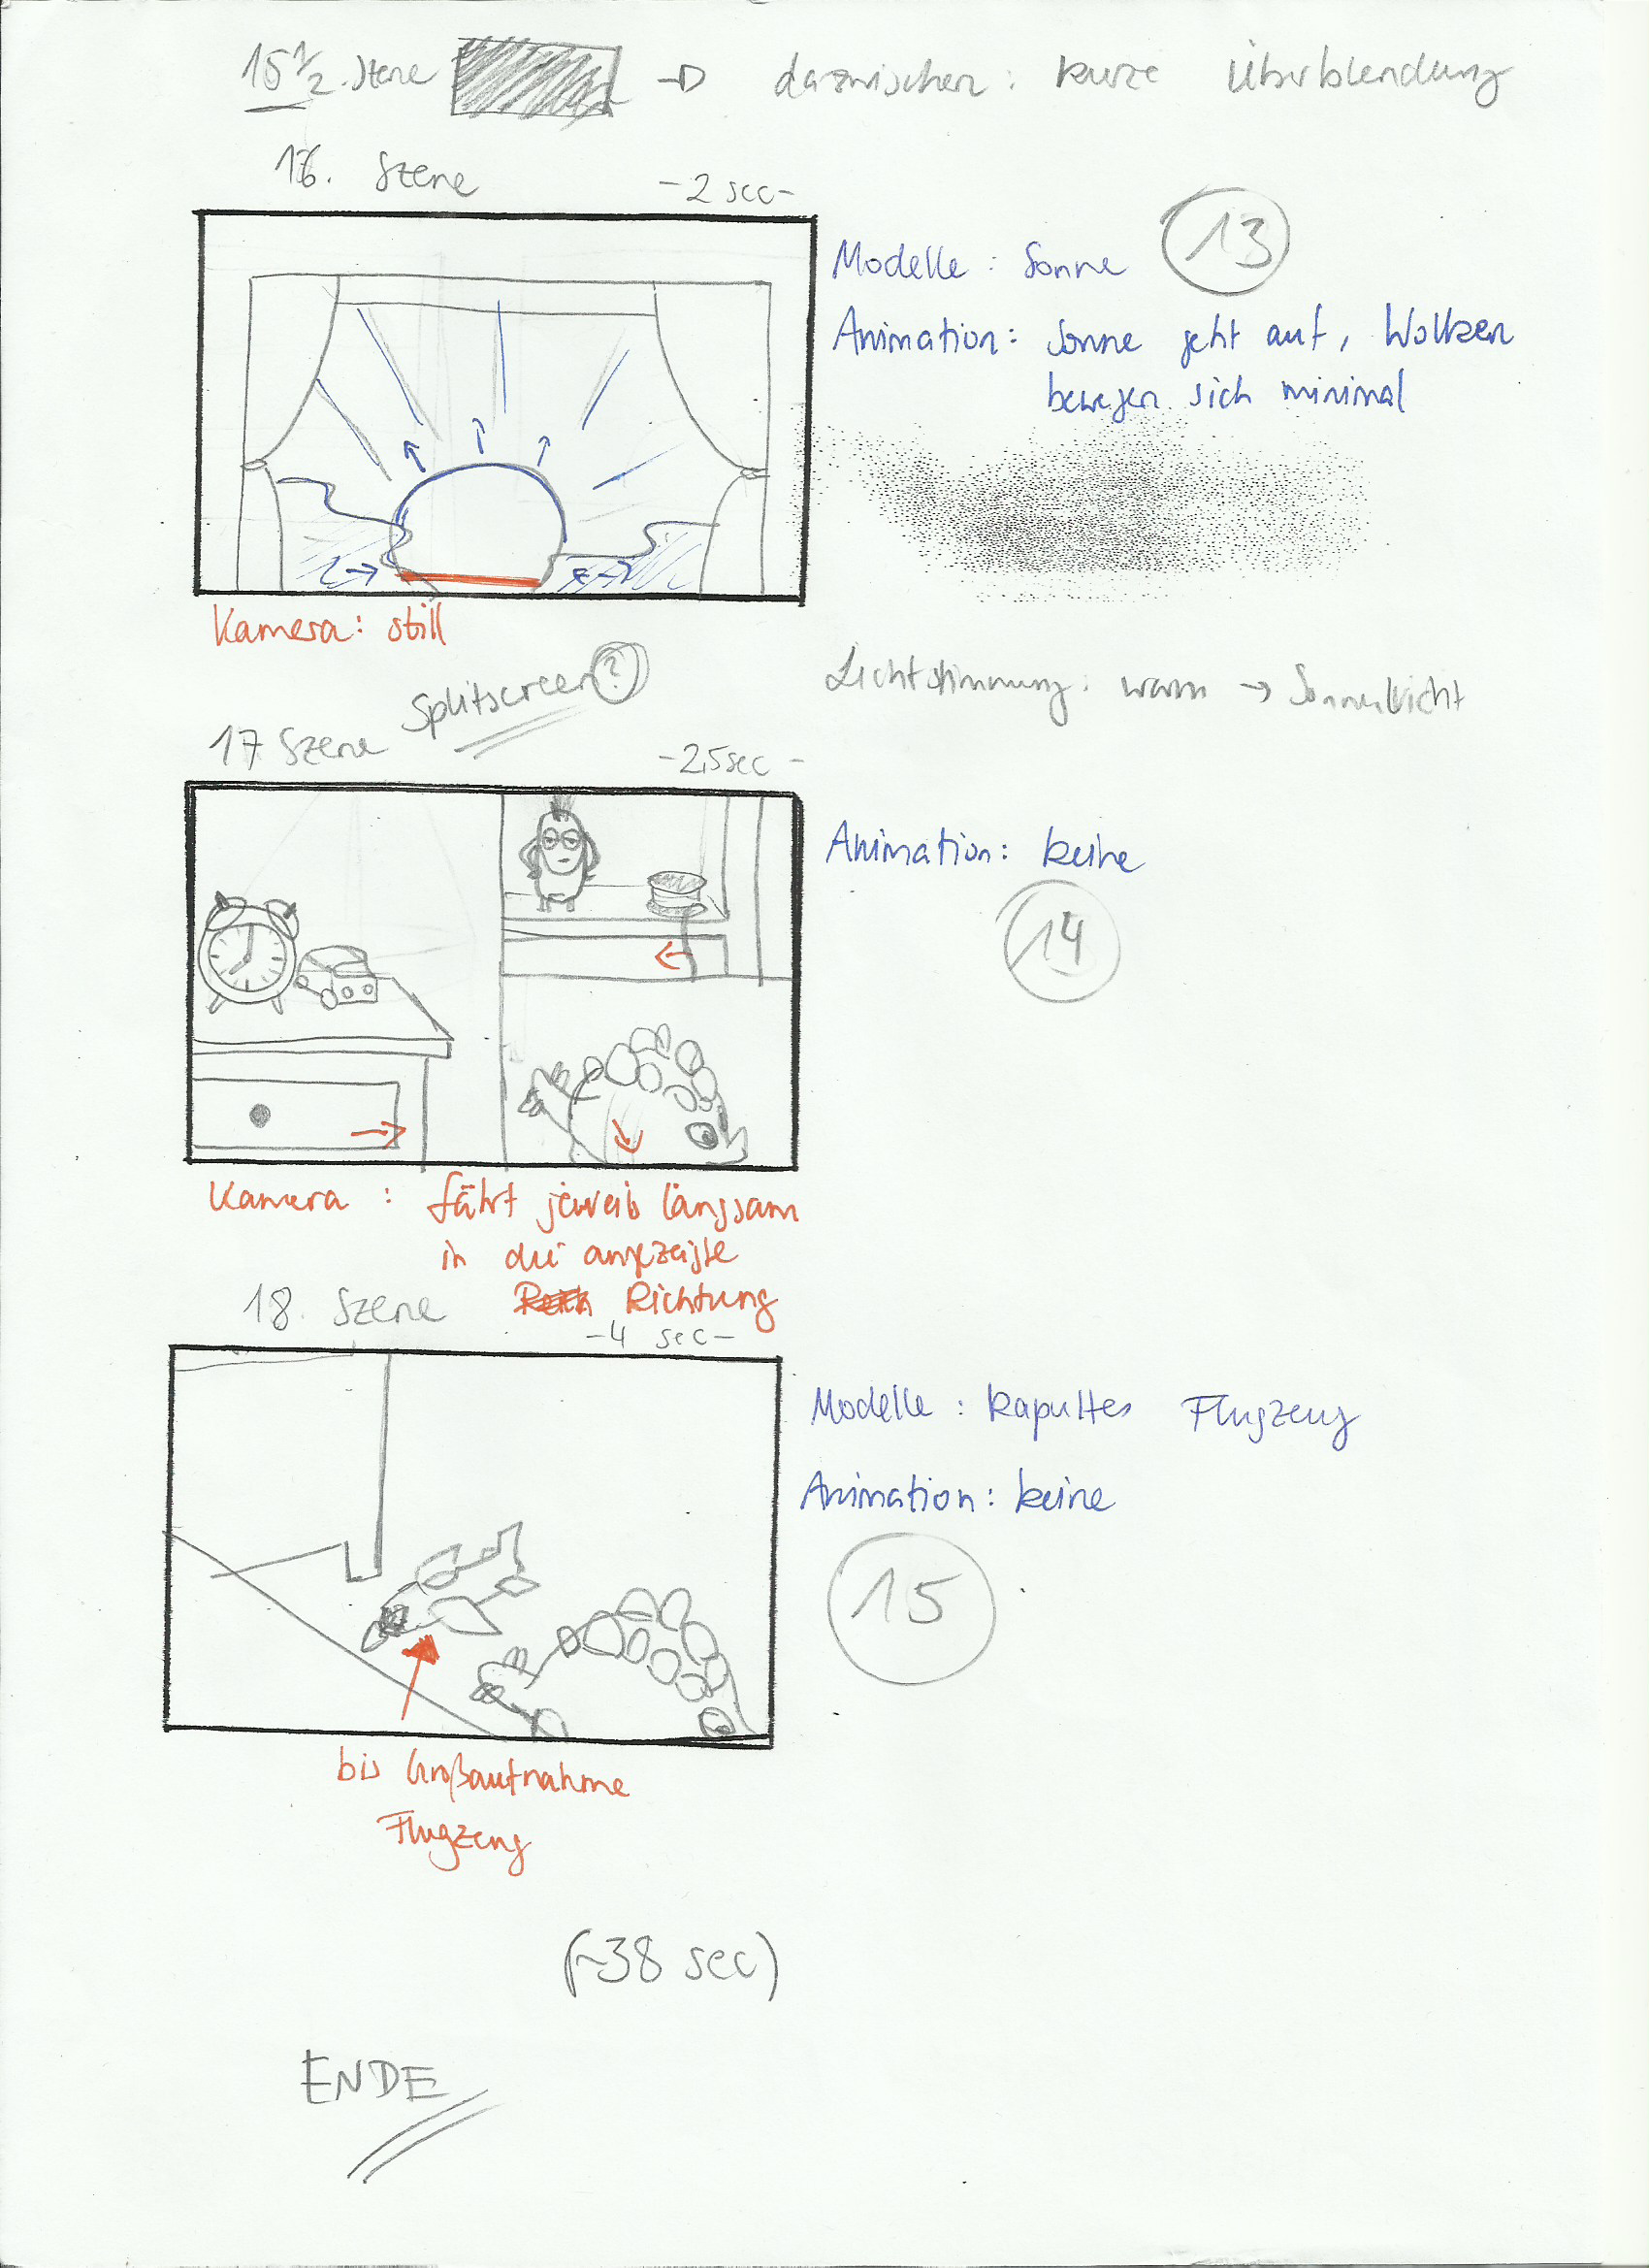 15 1/2. Szene → dazwischen: kurze Überblendung
16. Szene
-2 sec-
Modelle: Sonne
13
Animation: Sonne geht auf, Wolken
bewegen sich minimal
Kamera: still
Lichtstimmung: warm → Sonnenlicht
Splitscreen?
17 Szene
-2,5sec-
Animation: keine
14
Kamera: fährt jeweils langsam
in die angezeigte
Richtung
18. Szene
-4 sec-
Modelle: kaputtes Flugzeug
Animation: keine
15
bis Großaufnahme
Flugzeug
(~38 sec)
ENDE